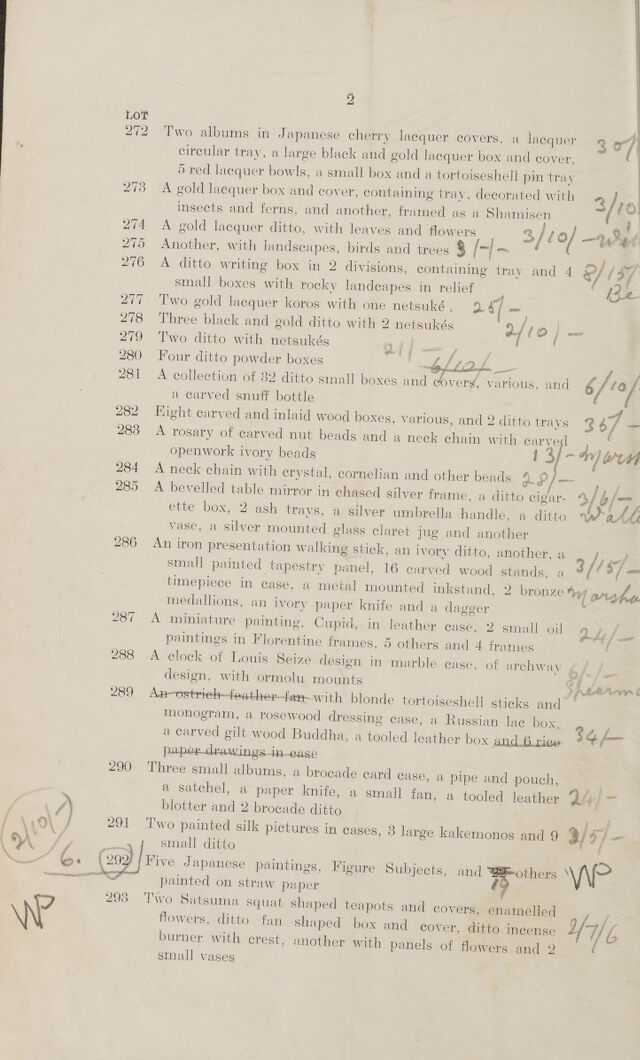 2
LOT
272 Two albums in Japanese cherry lacquer covers, a lacquer 30/
circular tray, a large black and gold lacquer box and cover,
5 red lacquer bowls, a small box and a tortoiseshell pin tray
273 A gold lacquer box and cover, containing tray, decorated with
insects and ferns, and another, framed as a Shamisen 3/10/
274 A gold lacquer ditto, with leaves and flowers 3/10/-
275 Another, with landscapes, birds and trees 3/-/-
276 A ditto writing box in 2 divisions, containing tray and 4 2/15/
small boxes with rocky landcapes in relief Be
277 Two gold lacquer koros with one netsuké, 25/-
278 Three black and gold ditto with 2 netsukés 2/10/-
279 Two ditto with netsukés 21/-
280 Four ditto powder boxes 6/10/-
281 A collection of 32 ditto small boxes and covers, various, and 6/10/
a carved snuff bottle
282 Eight carved and inlaid wood boxes, various, and 2 ditto trays 36/-
283 A rosary of carved nut beads and a neck chain with carved
openwork ivory beads 13/- Marsh
284 A neck chain with crystal, cornelian and other beads 28/-
285 A bevelled table mirror in chased silver frame, a ditto cigar- 3/6/-
ette box, 2 ash trays, a silver umbrella handle, a ditto Walli
vase, a silver mounted glass claret jug and another
286 An iron presentation walking stick, an ivory ditto, another, a
small painted tapestry panel, 16 carved wood stands, a 3/15/-
timepiece in case, a metal mounted inkstand, 2 bronze Marsha
medallions, an ivory paper knife and a dagger
287 A miniature painting, Cupid, in leather case, 2 small oil 24/-
paintings in Florentine frames, 5 others and 4 frames
288 A clock of Louis Seize design in marble case, of archway 6/-/-
design, with ormolu mounts Spearm
289 An ostrich feather fan with blonde tortoiseshell sticks and
monogram, a rosewood dressing case, a Russian lac box,
a carved gilt wood Buddha, a tooled leather box and 6 rice 34/-
paper drawings in case
290 Three small albums, a brocade card case, a pipe and pouch,
a satchel, a paper knife, a small fan, a tooled leather 24/-
blotter and 2 brocade ditto
2/10/-
291 Two painted silk pictures in cases, 3 large kakemonos and 9 3/5/-
small ditto
6. 292 Five Japanese paintings, Figure Subjects, and others WP
painted on straw paper 19
WP
293 Two Satsuma squat shaped teapots and covers, enamelled
flowers, ditto fan shaped box and cover, ditto incense 2/7/6
burner with crest, another with panels of flowers and 2
small vases